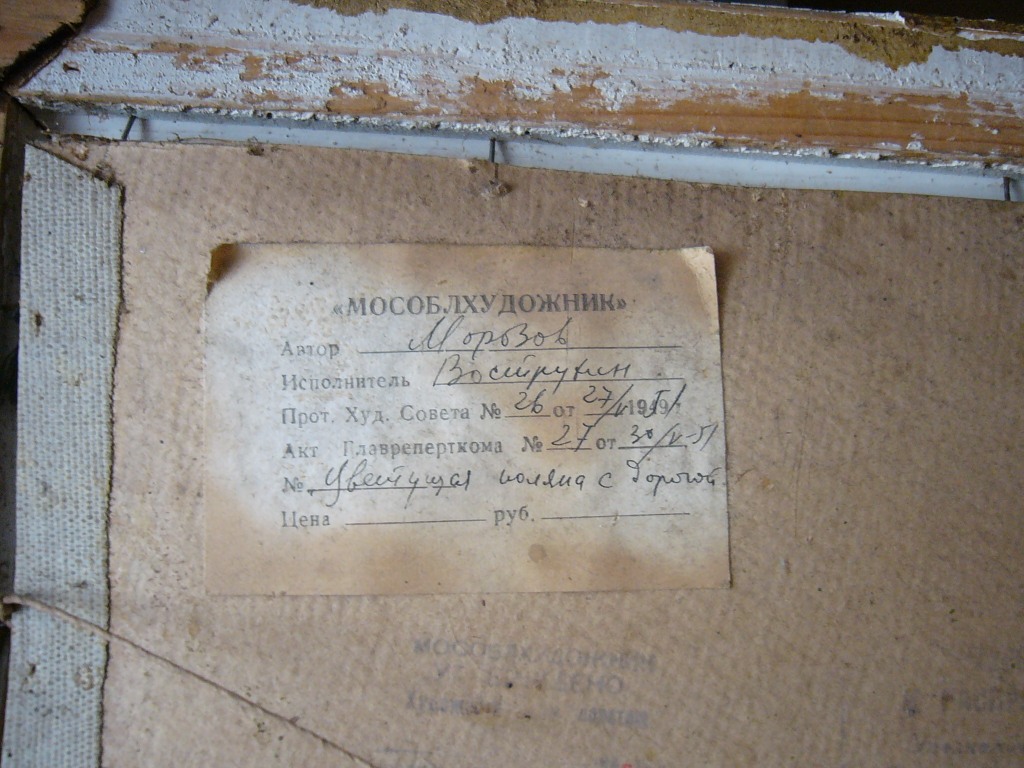 «МОСОБЛХУДОЖНИК»
Автор Морозов
Исполнитель Вострутин
Прот. Худ. Совета № 26 от 27/V 1951
Акт Главреперткома № 27 от 30/V-51
№ Цветущая поляна с дорогой
Цена руб.
МОСОБЛХУДОЖНИК